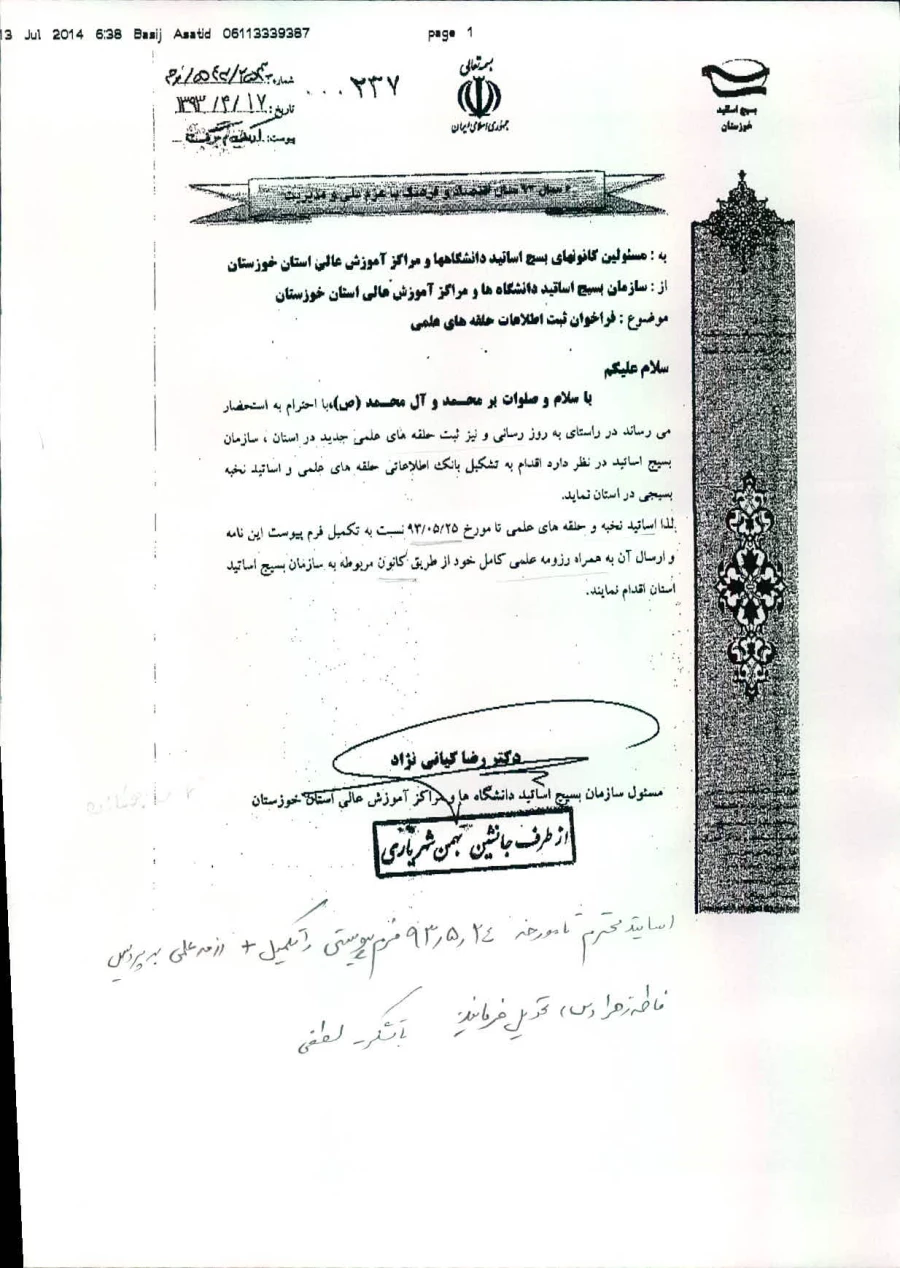 13 Jul 2014 6:38 Basij Asatid 06113339387 page 1
بسمه تعالی
جمهوری اسلامی ایران
بسیج اساتید
خوزستان
۰۰۰۲۳۷
شماره:
تاریخ: ۱۳۹۳/۴/۱۷
پیوست:
سال ۹۳ سال اقتصاد و فرهنگ با عزم ملی و مدیریت
به : مسئولین کانونهای بسیج اساتید دانشگاهها و مراکز آموزش عالی استان خوزستان
از : سازمان بسیج اساتید دانشگاه ها و مراکز آموزش عالی استان خوزستان
موضوع : فراخوان ثبت اطلاعات حلقه های علمی
سلام علیکم
با سلام و صلوات بر محمد و آل محمد (ص)،با احترام به استحضار
می رساند در راستای به روز رسانی و نیز ثبت حلقه های علمی جدید در استان ، سازمان
بسیج اساتید در نظر دارد اقدام به تشکیل بانک اطلاعاتی حلقه های علمی و اساتید نخبه
بسیجی در استان نماید.
لذا اساتید نخبه و حلقه های علمی تا مورخ ۹۳/۰۵/۲۵ نسبت به تکمیل فرم پیوست این نامه
و ارسال آن به همراه رزومه علمی کامل خود از طریق کانون مربوطه به سازمان بسیج اساتید
استان اقدام نمایند.
دکتر رضا کیانی نژاد
مسئول سازمان بسیج اساتید دانشگاه ها و مراکز آموزش عالی استان خوزستان
از طرف جانشین بهمن شهریاری
اساتید محترم تا مورخه ۹۳/۵/۲۴ فرم پیوستی را تکمیل + رزومه علمی به پردیس
فاطمه زهرا (س) تحویل فرمایند. با تشکر لطفی